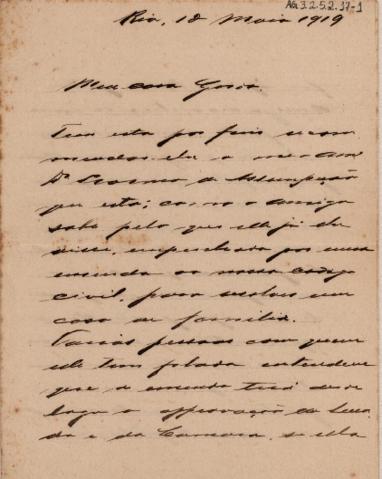 AG3.2.5.2.37-1
Rio, 18 Maio 1919
Meu caro
Tem esta por fim recom
mendar-lhe o meu am
Dr de Assumpção
que está, como o amigo
sabe pelo que elle já lhe
disse, empenhado por uma
emenda ao nosso codigo
civil, para resolver um
caso de familia.
Varias pessoas com quem
elle tem falado entendem
que a emenda terá de
logo a approvação do Sena
do e da Camara, se ella